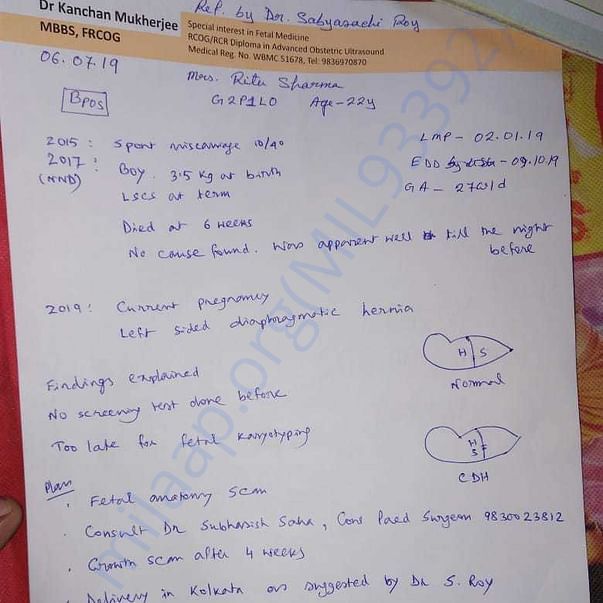 Ref. by Dr. Sabyasachi Roy
Dr Kanchan Mukherjee
MBBS, FRCOG
Special interest in Fetal Medicine
RCOG/RCR Diploma in Advanced Obstetric Ultrasound
Medical Reg. No. WBMC 51678, Tel: 9836970870
06.07.19
Mrs. Ritu Sharma
B pos
G2P1L0 Age-22y
2015 : Spont miscarriage 10/40
LMP - 02.01.19
2017 : Boy. 3.5 kg at birth
EDD - 09.10.19
(NND)
LSCS at term
GA - 27w1d
Died at 6 weeks
No cause found. Was apparent well till the night
before
2019 : Current pregnancy
Left sided diaphragmatic hernia
H S
Normal
Findings explained
No screening test done before
Too late for fetal karyotyping
H
S
CDH
Plan
. Fetal anatomy scan
. Consult Dr Subhasish Saha, Cons Paed Surgeon 9830023812
. Growth scan after 4 weeks
. Delivery in Kolkata as suggested by Dr S. Roy
milaap.org(MIL933927